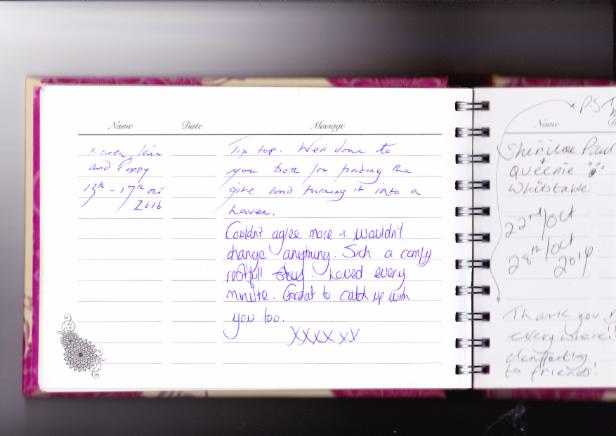 Name Date Message
and Poppy
13th - 17th Oct
2016
Tip top. Well done to
you both for finding the
gite and turning it into a
haven.
Couldn't agree more + wouldn't
change anything. Such a comfy
restful stay. Loved every
minute. Great to catch up with
you too.
XXXX XX
P.S
Name
Paul
+
Queenie
Whitstable
22nd/Oct
28th/Oct
Thank you
everywhere!
to friends!